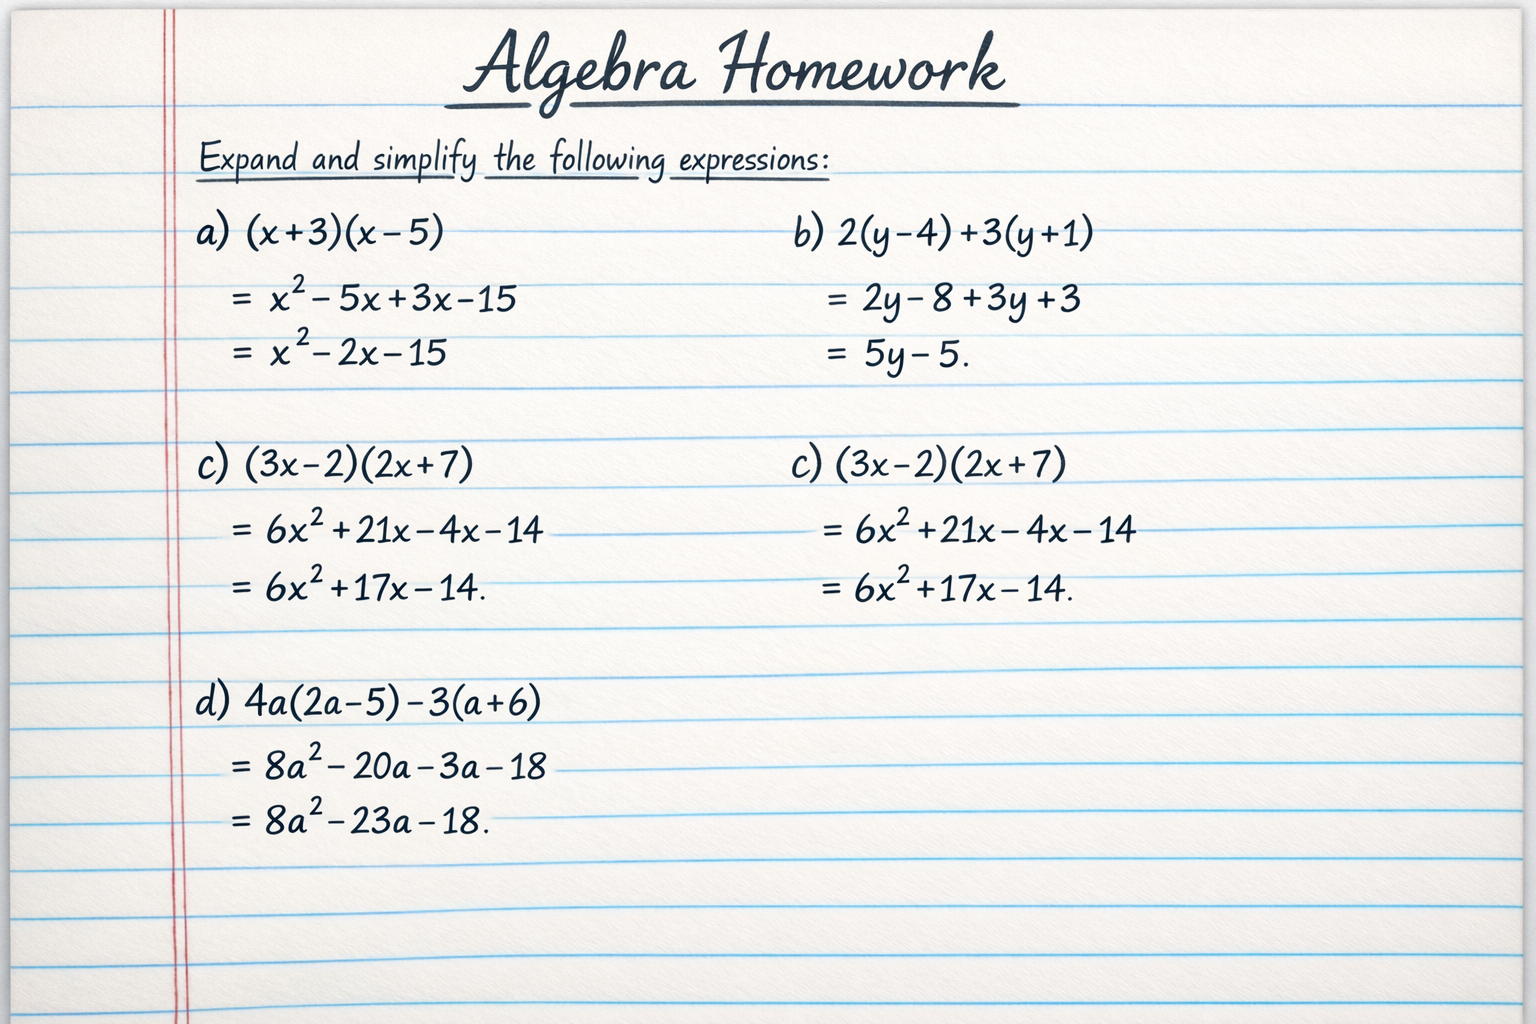 Algebra Homework
Expand and simplify the following expressions:
a) (x+3)(x-5)
= x²-5x+3x-15
= x²-2x-15
b) 2(y-4)+3(y+1)
= 2y-8+3y+3
= 5y-5.
c) (3x-2)(2x+7)
= 6x²+21x-4x-14
= 6x²+17x-14.
c) (3x-2)(2x+7)
= 6x²+21x-4x-14
= 6x²+17x-14.
d) 4a(2a-5)-3(a+6)
= 8a²-20a-3a-18
= 8a²-23a-18.